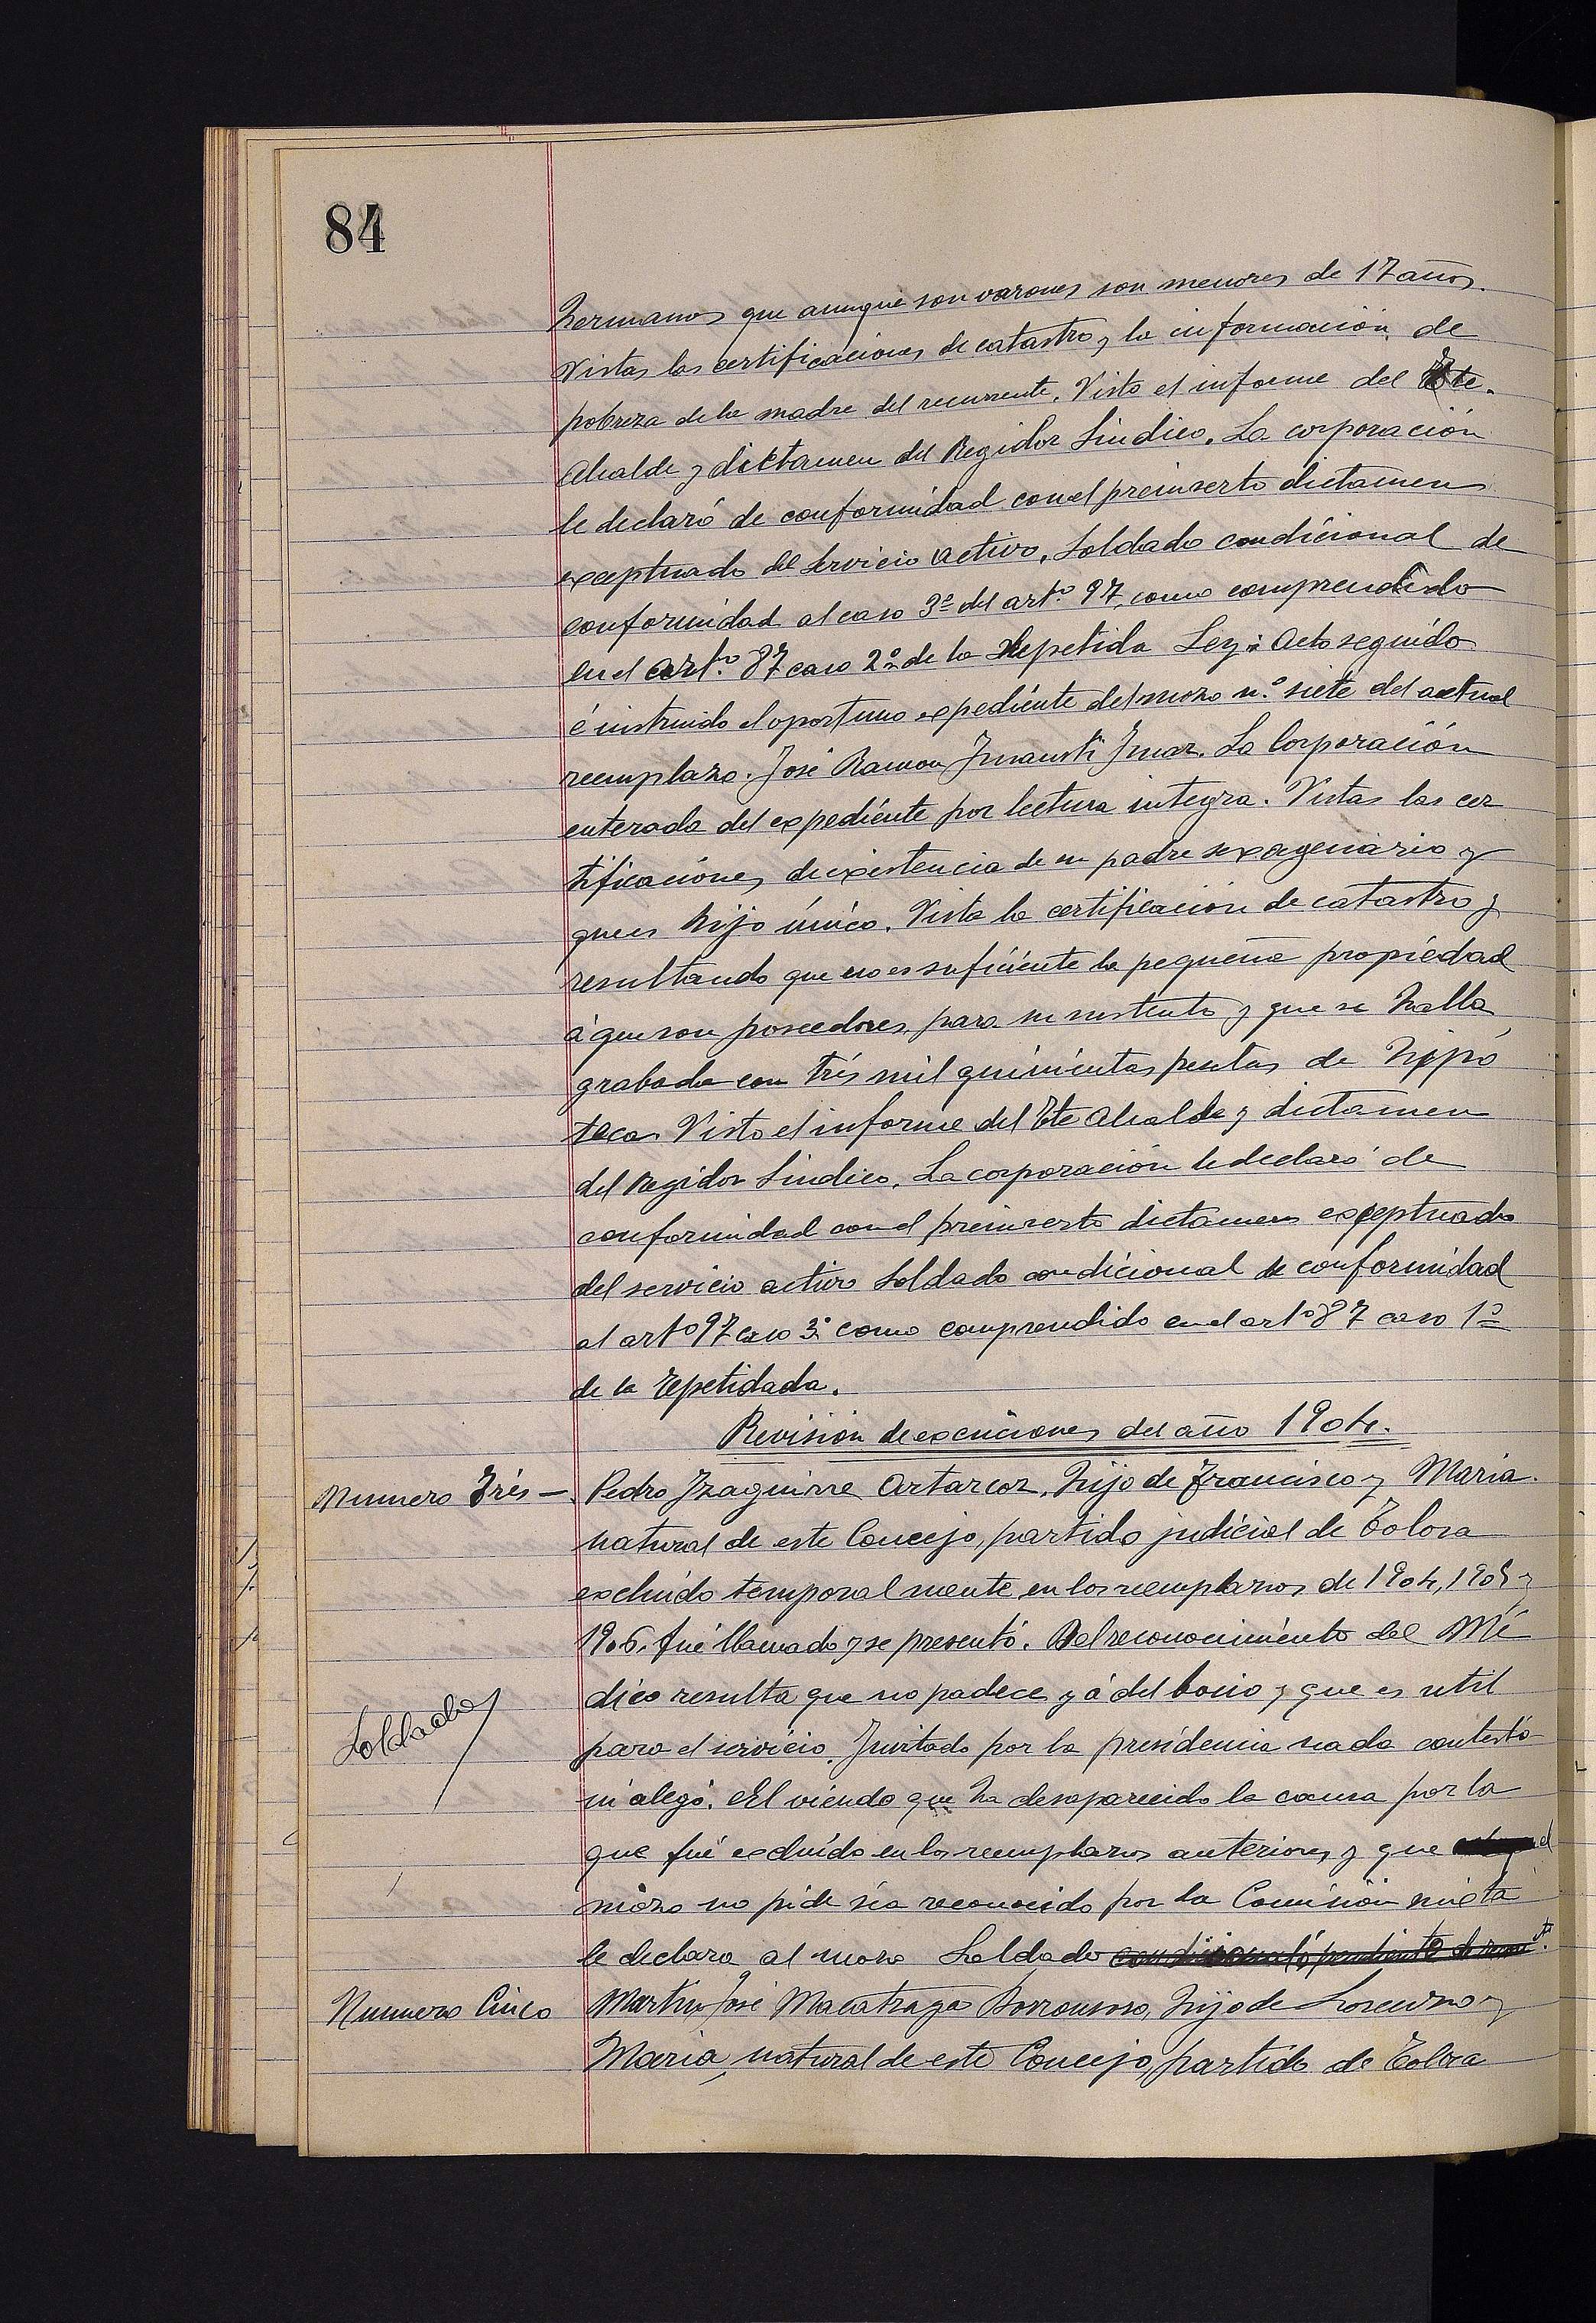 84
hermanos que aunque son varones son menores de 17 años.
Vistas las certificaciones de catastro y la información de
pobreza de la madre del recurrente. Visto el informe del Tte.
Alcalde y dictamen del Regidor Sindico. La corporación
le declaró de conformidad con el preinserto dictamen
exceptuado del servicio activo, Soldado condicional de
conformidad al caso 3º del artº. 97, como comprendido
en el artº. 87 caso 2º de la Repetida Ley. Acto seguido
é instruido el oportuno expediente del mozo n.º siete del actual
reemplazo. José Ramon Inausti Imaz. La Corporación
enterada del expediente por lectura integra. Vistas las cer
tificaciones de existencia de su padre sexagenario y
que es hijo único. Vista la certificación de catastro y
resultando que no es suficiente la pequeña propiedad
á que son poseedores para su sustento y que se halla
grabada con trés mil quinientas pesetas de hipo
teca. Visto el informe del Tte Alcalde y dictamen
del Regidor Sindico. La corporación le declaró de
conformidad con el preinserto dictamen exceptuado
del servicio activo Soldado condicional de conformidad
al artº 97 caso 3º como comprendido en el artº 87 caso 1º
de la repetidada.
Revisión de excenciones del año 1904.
Numero Trés — Pedro Izaguirre Artarcoz, hijo de Francisco y Maria
natural de este Concejo, partido judicial de Tolosa
excluido temporalmente en los reemplazos de 1904, 1905 y
1906. fué llamado y se presentó. Del reconocimiento del Mé
dico resulta que no padece yá del bocio y que es util
Soldado
para el servicio. Invitado por la presidencia nada contestó
ni alegó. El viendo que ha desaparecido la causa por la
que fué excluído en los reemplazos anteriores y que el
mozo no pide sea reconocido por la Comisión mixta
le declara al mozo Soldado condicional ó pendiente de
Numero Cinco Martin José Macatzaga Borronsoro, hijo de Lorenzo y
Maria, natural de este Concejo, partido de Tolosa